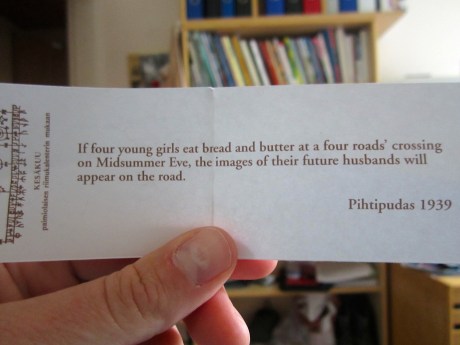 If four young girls eat bread and butter at a four roads' crossing
on Midsummer Eve, the images of their future husbands will
appear on the road.
Pihtipudas 1939
KESÄKUU